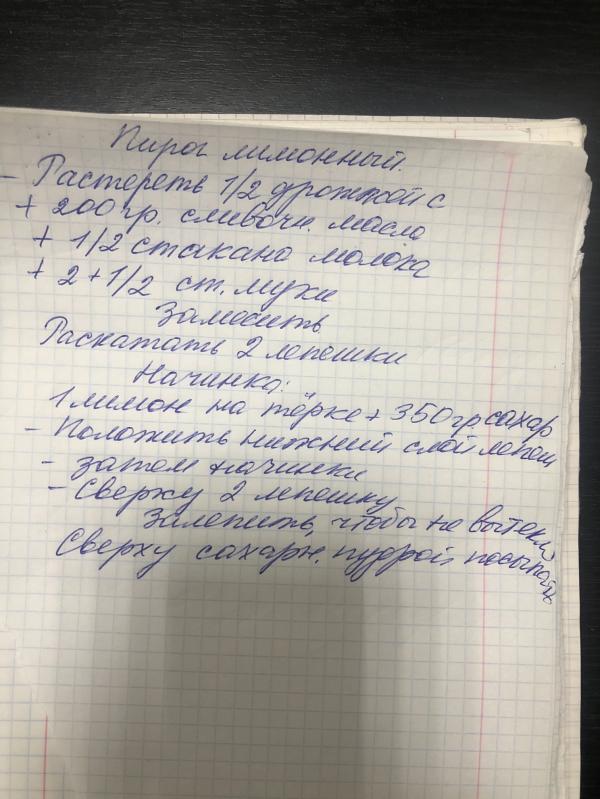 Пирог лимонный.
- Растереть 1/2 дрожжей с
+ 200 гр. сливочн. масло
+ 1/2 стакана молока
+ 2 + 1/2 ст. муки
Замесить
Раскатать 2 лепешки
Начинка:
1 лимон на тёрке + 350 гр сахар
- Положить нижний слой лепеш
- затем начинки
- Сверху 2 лепешку
Залепить, чтобы не вытекло
Сверху сахарн. пудрой посыпать